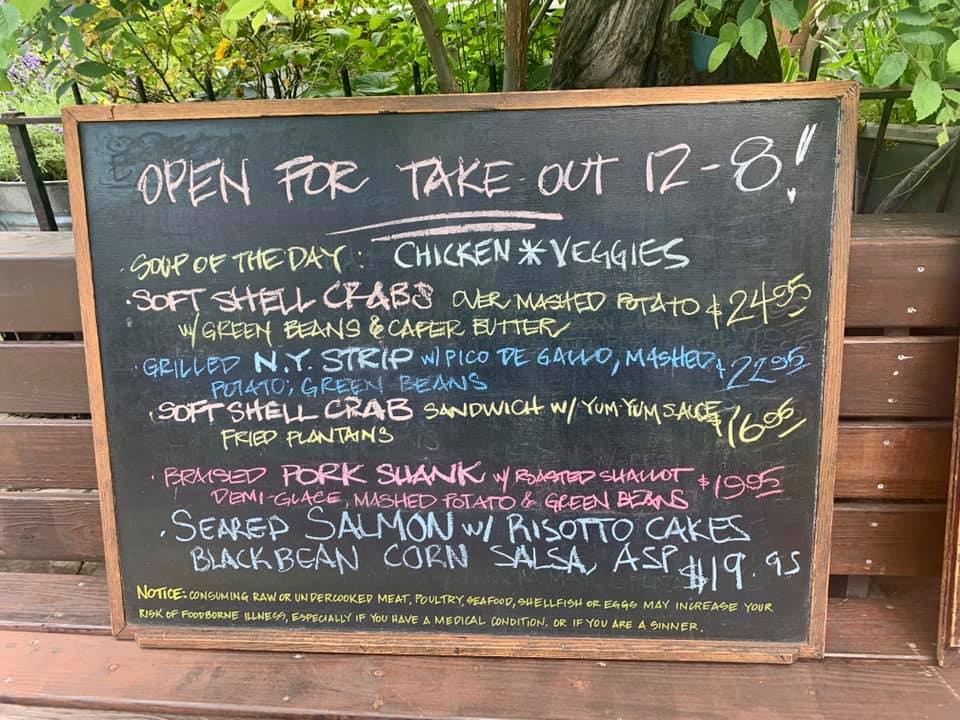 OPEN FOR TAKE-OUT 12-8!
· SOUP OF THE DAY: CHICKEN * VEGGIES
· SOFT SHELL CRABS OVER MASHED POTATO $24.95
W/ GREEN BEANS & CAPER BUTTER
· GRILLED N.Y. STRIP W/ PICO DE GALLO, MASHED $22.95
POTATO, GREEN BEANS
· SOFT SHELL CRAB SANDWICH W/ YUM YUM SAUCE $16.95
FRIED PLANTAINS
· BRAISED PORK SHANK W/ ROASTED SHALLOT $19.95
DEMI-GLACE, MASHED POTATO & GREEN BEANS
· SEARED SALMON W/ RISOTTO CAKES
BLACK BEAN CORN SALSA, ASP $19.95
NOTICE: CONSUMING RAW OR UNDERCOOKED MEAT, POULTRY, SEAFOOD, SHELLFISH OR EGGS MAY INCREASE YOUR
RISK OF FOODBORNE ILLNESS, ESPECIALLY IF YOU HAVE A MEDICAL CONDITION. OR IF YOU ARE A SINNER.